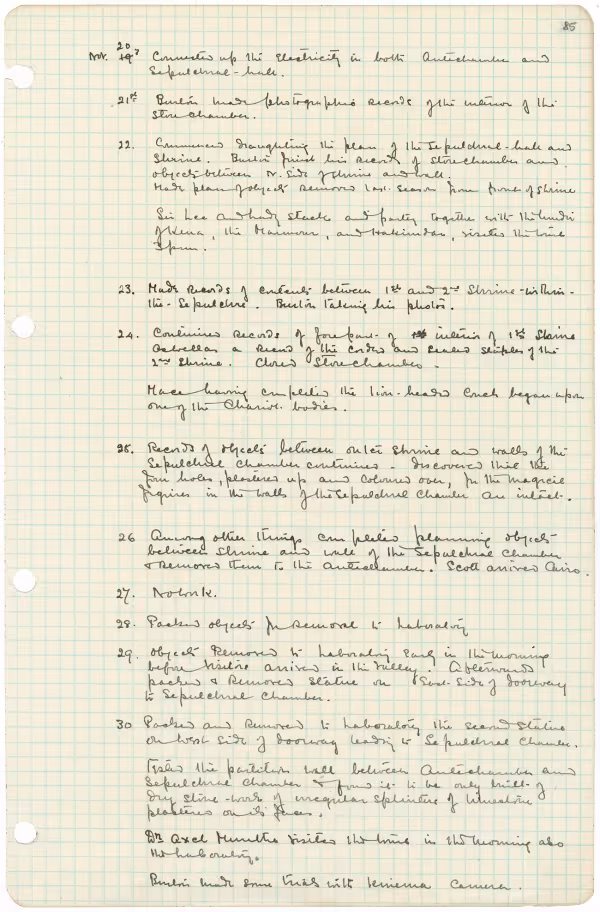 85
Nov. 20
Connected up the Electricity in both Antechamber and
Sepulchral-hall.
21st Burton made photographic records of the interior of the
Storechamber.
22. Commenced draughting the plan of the Sepulchral-hall and
Shrine. Burton finished his records of Storechamber and
objects between N. side of shrine and wall.
Made plan of objects removed last season from front of shrine
Sir Lee and Lady Stack and party together with the Mudir
of Kena, the Mamour, and Hakimdar, visited the tomb
3 p.m.
23. Made records of contents between 1st and 2nd Shrine-within-
the-Sepulchre. Burton taking his photos.
24. Continued records of forepart of interior of 1st Shrine
as well as a record of the corded and sealed staples of the
2nd Shrine. Closed Storechamber.
Mace having completed the lion-headed couch began upon
one of the Chariot-bodies.
25. Records of objects between outer shrine and walls of the
Sepulchral Chamber continued. Discovered that the
four holes, plastered up and coloured over, for the magical
figures in the walls of the Sepulchral Chamber are intact.
26 Among other things completed planning objects
between Shrine and wall of the Sepulchral Chamber
& removed them to the Antechamber. Scott arrived Cairo.
27. No work.
28. Packed objects for removal to Laboratory
29. Objects removed to Laboratory early in the morning
before visitors arrived in the Valley. Afterwards
packed & removed statue on East-side of doorway
to Sepulchral Chamber.
30 Packed and removed to Laboratory the second statue
on west side of doorway leading to Sepulchral Chamber.
Tested the partition wall between Antechamber and
Sepulchral Chamber & found it to be only built of
dry stone-work of irregular splinters of limestone
plastered on its faces.
Dr. Axel Munthe visited the tomb in the morning also
the Laboratory.
Burton made some trials with kinema camera.